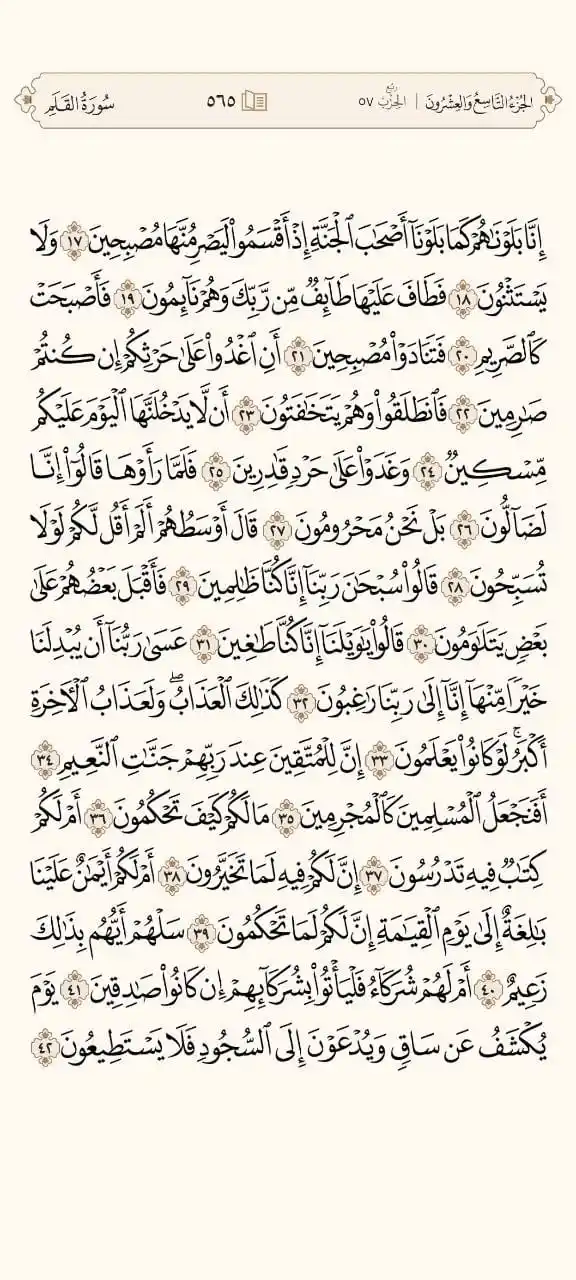 الجزء التاسع والعشرون | ربع الحزب ٥٧ ٥٦٥ سورة القلم
إِنَّا بَلَوْنَٰهُمْ كَمَا بَلَوْنَآ أَصْحَٰبَ ٱلْجَنَّةِ إِذْ أَقْسَمُوا۟ لَيَصْرِمُنَّهَا مُصْبِحِينَ ١٧ وَلَا
يَسْتَثْنُونَ ١٨ فَطَافَ عَلَيْهَا طَآئِفٌ مِّن رَّبِّكَ وَهُمْ نَآئِمُونَ ١٩ فَأَصْبَحَتْ
كَٱلصَّرِيمِ ٢٠ فَتَنَادَوْا۟ مُصْبِحِينَ ٢١ أَنِ ٱغْدُوا۟ عَلَىٰ حَرْثِكُمْ إِن كُنتُمْ
صَٰرِمِينَ ٢٢ فَٱنطَلَقُوا۟ وَهُمْ يَتَخَٰفَتُونَ ٢٣ أَن لَّا يَدْخُلَنَّهَا ٱلْيَوْمَ عَلَيْكُم
مِّسْكِينٌ ٢٤ وَغَدَوْا۟ عَلَىٰ حَرْدٍ قَٰدِرِينَ ٢٥ فَلَمَّا رَأَوْهَا قَالُوٓا۟ إِنَّا
لَضَآلُّونَ ٢٦ بَلْ نَحْنُ مَحْرُومُونَ ٢٧ قَالَ أَوْسَطُهُمْ أَلَمْ أَقُل لَّكُمْ لَوْلَا
تُسَبِّحُونَ ٢٨ قَالُوا۟ سُبْحَٰنَ رَبِّنَآ إِنَّا كُنَّا ظَٰلِمِينَ ٢٩ فَأَقْبَلَ بَعْضُهُمْ عَلَىٰ
بَعْضٍ يَتَلَٰوَمُونَ ٣٠ قَالُوا۟ يَٰوَيْلَنَآ إِنَّا كُنَّا طَٰغِينَ ٣١ عَسَىٰ رَبُّنَآ أَن يُبْدِلَنَا
خَيْرًا مِّنْهَآ إِنَّآ إِلَىٰ رَبِّنَا رَٰغِبُونَ ٣٢ كَذَٰلِكَ ٱلْعَذَابُ ۖ وَلَعَذَابُ ٱلْءَاخِرَةِ
أَكْبَرُ ۚ لَوْ كَانُوا۟ يَعْلَمُونَ ٣٣ إِنَّ لِلْمُتَّقِينَ عِندَ رَبِّهِمْ جَنَّٰتِ ٱلنَّعِيمِ ٣٤
أَفَنَجْعَلُ ٱلْمُسْلِمِينَ كَٱلْمُجْرِمِينَ ٣٥ مَا لَكُمْ كَيْفَ تَحْكُمُونَ ٣٦ أَمْ لَكُمْ
كِتَٰبٌ فِيهِ تَدْرُسُونَ ٣٧ إِنَّ لَكُمْ فِيهِ لَمَا تَخَيَّرُونَ ٣٨ أَمْ لَكُمْ أَيْمَٰنٌ عَلَيْنَا
بَٰلِغَةٌ إِلَىٰ يَوْمِ ٱلْقِيَٰمَةِ إِنَّ لَكُمْ لَمَا تَحْكُمُونَ ٣٩ سَلْهُمْ أَيُّهُم بِذَٰلِكَ
زَعِيمٌ ٤٠ أَمْ لَهُمْ شُرَكَآءُ فَلْيَأْتُوا۟ بِشُرَكَآئِهِمْ إِن كَانُوا۟ صَٰدِقِينَ ٤١ يَوْمَ
يُكْشَفُ عَن سَاقٍ وَيُدْعَوْنَ إِلَى ٱلسُّجُودِ فَلَا يَسْتَطِيعُونَ ٤٢